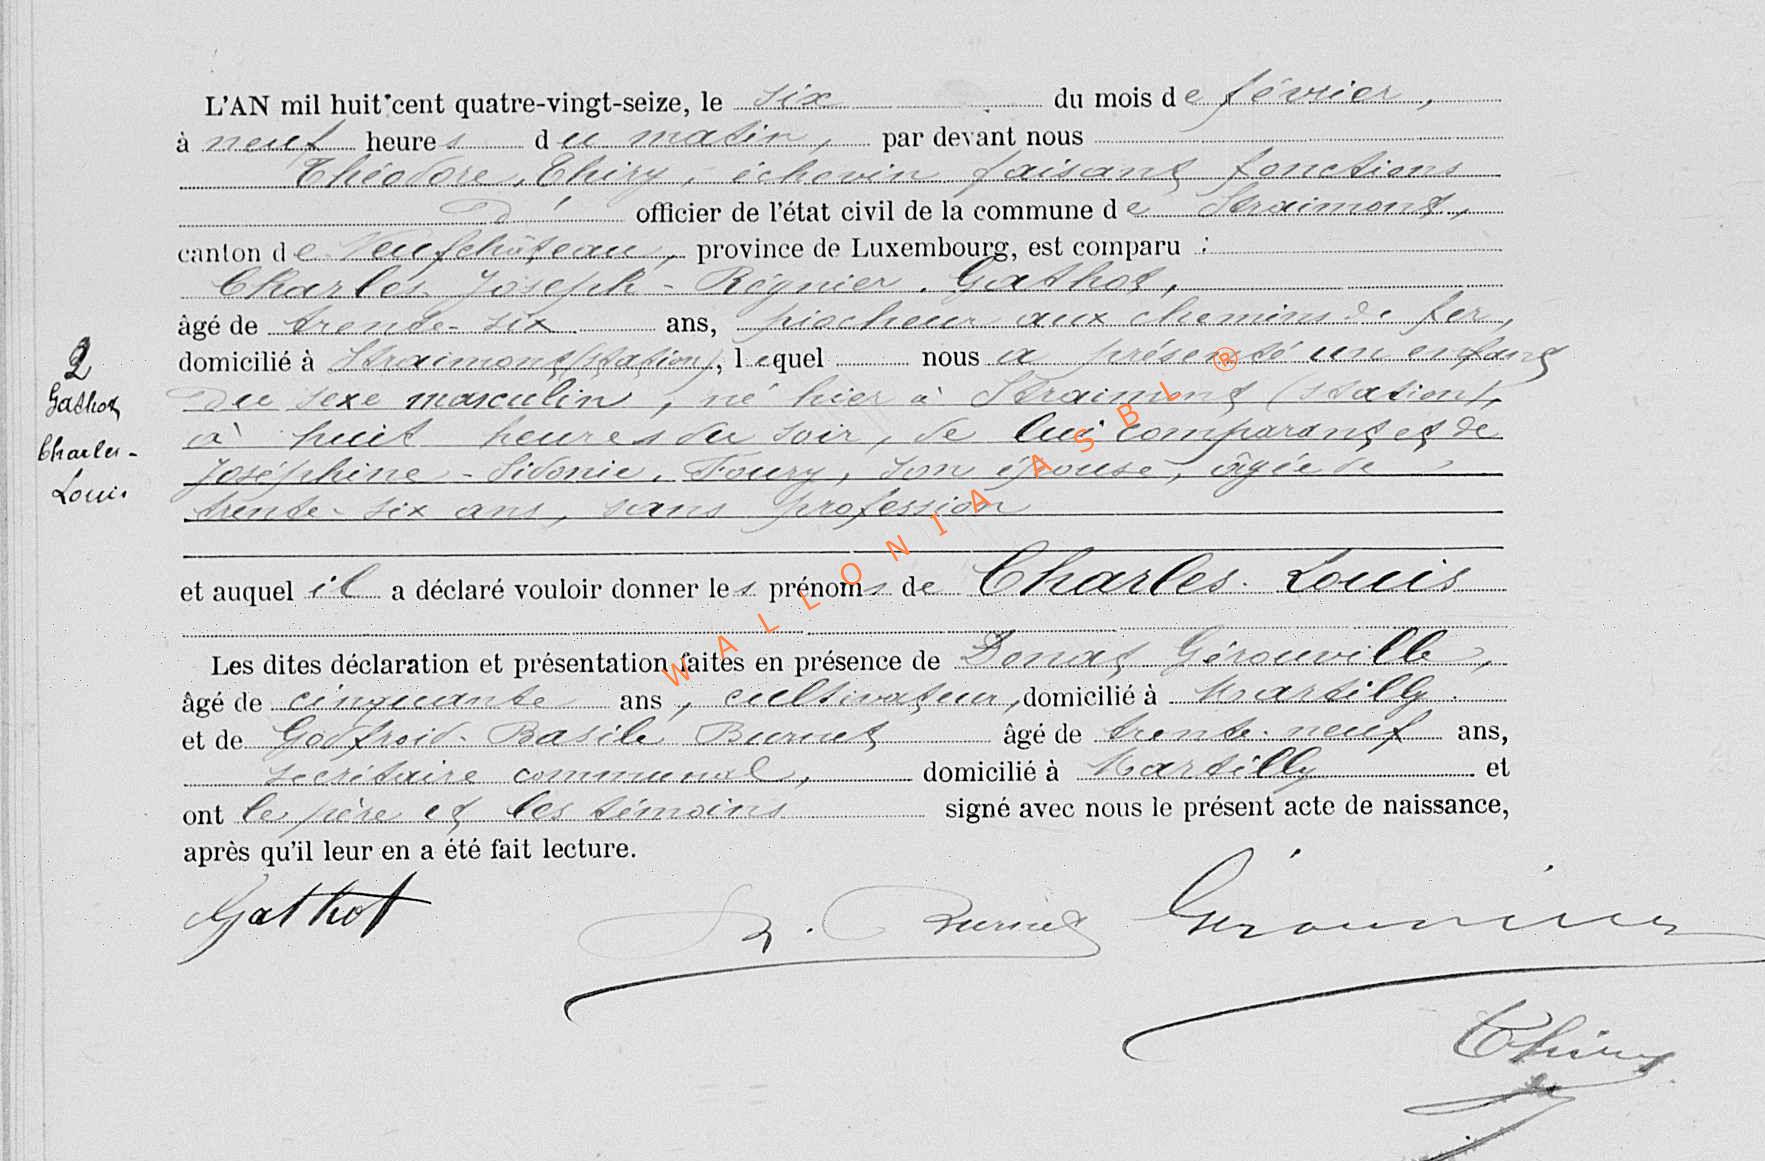 L'AN mil huit cent quatre-vingt-seize, le six du mois de février,
à neuf heures du matin, par devant nous
Théodore Thiry, échevin faisant fonctions
d' officier de l'état civil de la commune de Straimont,
canton de Neufchâteau, province de Luxembourg, est comparu :
Charles Joseph-Régnier Gathot,
âgé de trente-six ans, piocheur aux chemins de fer,
domicilié à Straimont (station), lequel nous a présenté un enfant
du sexe masculin, né hier à Straimont (station),
à huit heures du soir, de lui comparant et de
Joséphine-Sidonie Foury, son épouse, âgée de
trente-six ans, sans profession
et auquel il a déclaré vouloir donner les prénoms de Charles-Louis
Les dites déclaration et présentation faites en présence de Donat Gérouville,
âgé de cinquante ans, cultivateur, domicilié à Martilly
et de Godfroid-Basile Burnet âgé de trente-neuf ans,
secrétaire communal, domicilié à Martilly et
ont le père et les témoins signé avec nous le présent acte de naissance,
après qu'il leur en a été fait lecture.
2
Gathot
Charles-
Louis
Gathot
Burnet
Gérouville
Thiry
WALLONIA ASBL ®